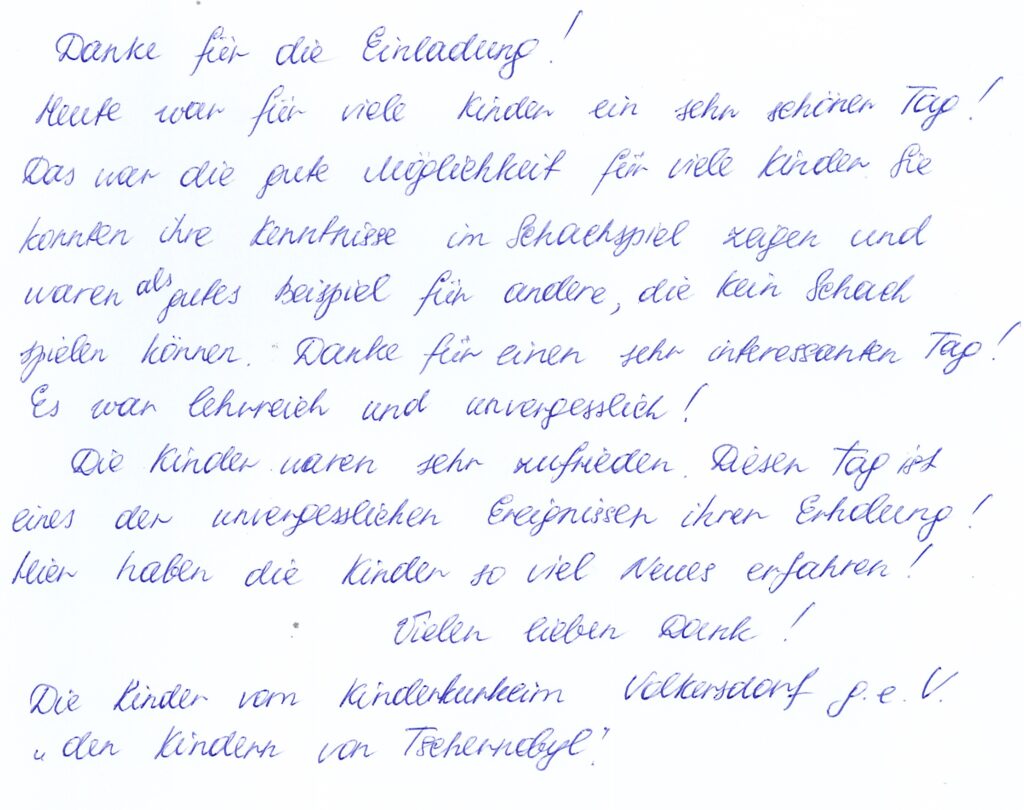 Danke für die Einladung!
Heute war für viele Kinder ein sehr schöner Tag!
Das war die gute Möglichkeit für viele Kinder. Sie
konnten ihre Kenntnisse im Schachspiel zeigen und
waren als gutes Beispiel für andere, die kein Schach
spielen können. Danke für einen sehr interessanten Tag!
Es war lehrreich und unvergesslich!
Die Kinder waren sehr zufrieden. Dieser Tag ist
eines der unvergesslichen Ereignissen ihrer Erholung!
Hier haben die Kinder so viel Neues erfahren!
Vielen lieben Dank!
Die Kinder vom Kinderkurheim Volkersdorf g.e.V.
„den Kindern von Tschernobyl".